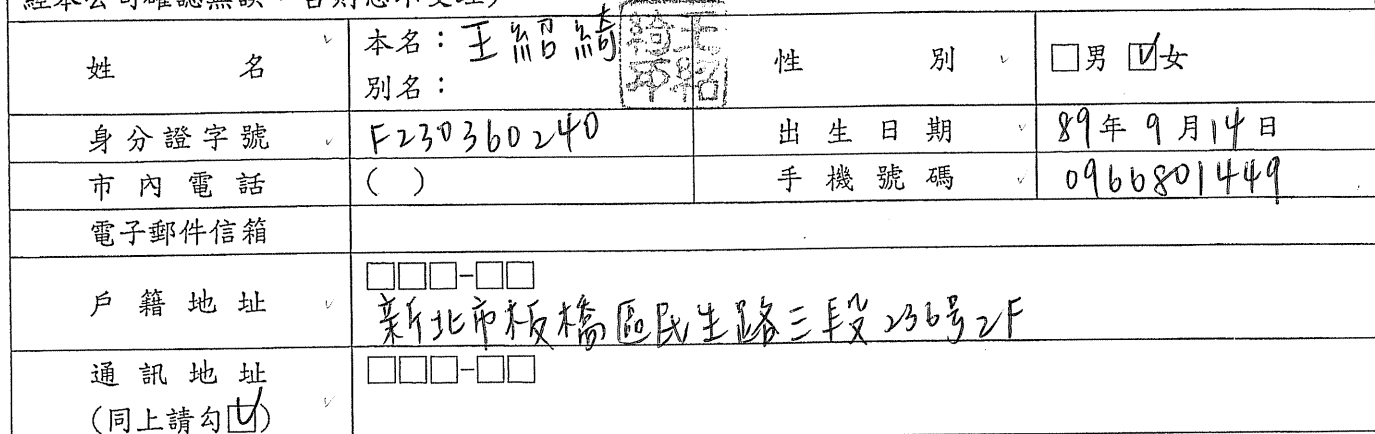 經本公司確認無誤，否則恕不受理)
姓名 本名：王紹綺 性別 □男 ☑女
別名：
身分證字號 F230360240 出生日期 89年9月14日
市內電話 ( ) 手機號碼 0966801449
電子郵件信箱
戶籍地址 □□□-□□
新北市板橋區民生路三段236号2F
通訊地址 □□□-□□
(同上請勾☑)